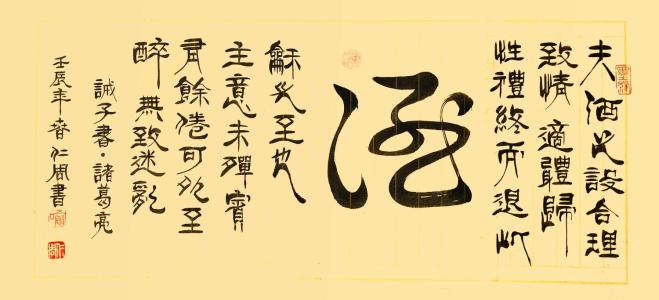 夫酒之設合理
致情適體歸
性禮終而退此
酒
龢之至也
主意未殫賓
有餘倦可以至
醉無致迷亂
誡子書·諸葛亮
壬辰年春仁周書